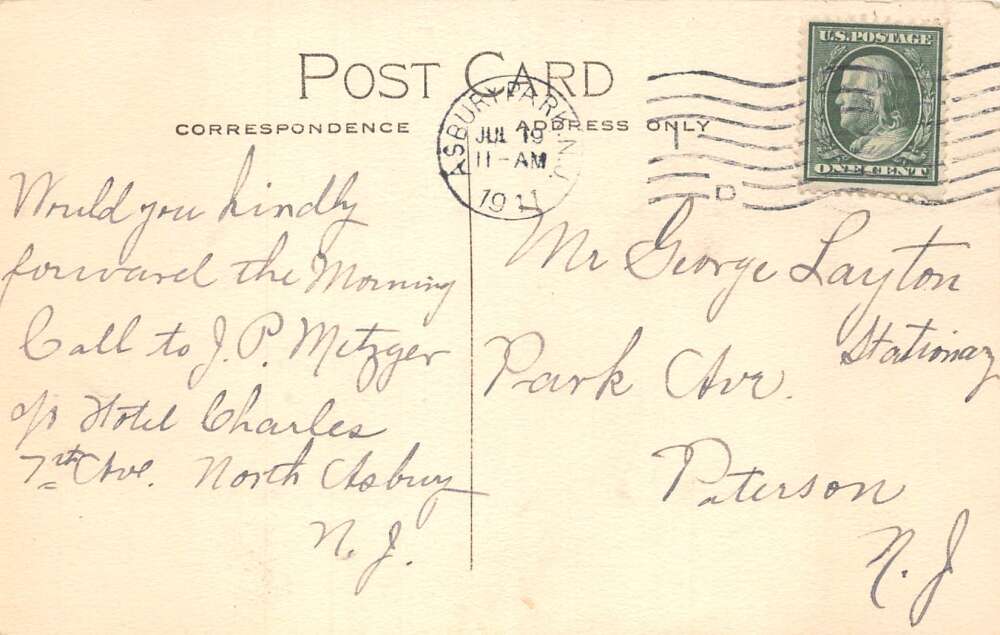 POST CARD
CORRESPONDENCE
ADDRESS ONLY
ASBURY PARK, N.J.
JUL 19
11-AM
1911
D
U.S. POSTAGE
ONE CENT
Would you kindly
forward the Morning
Call to J. P. Metzger
c/o Hotel Charles
7th Ave. North Asbury
N. J.
Mr George Layton
Stationary
Park Ave.
Paterson
N. J.